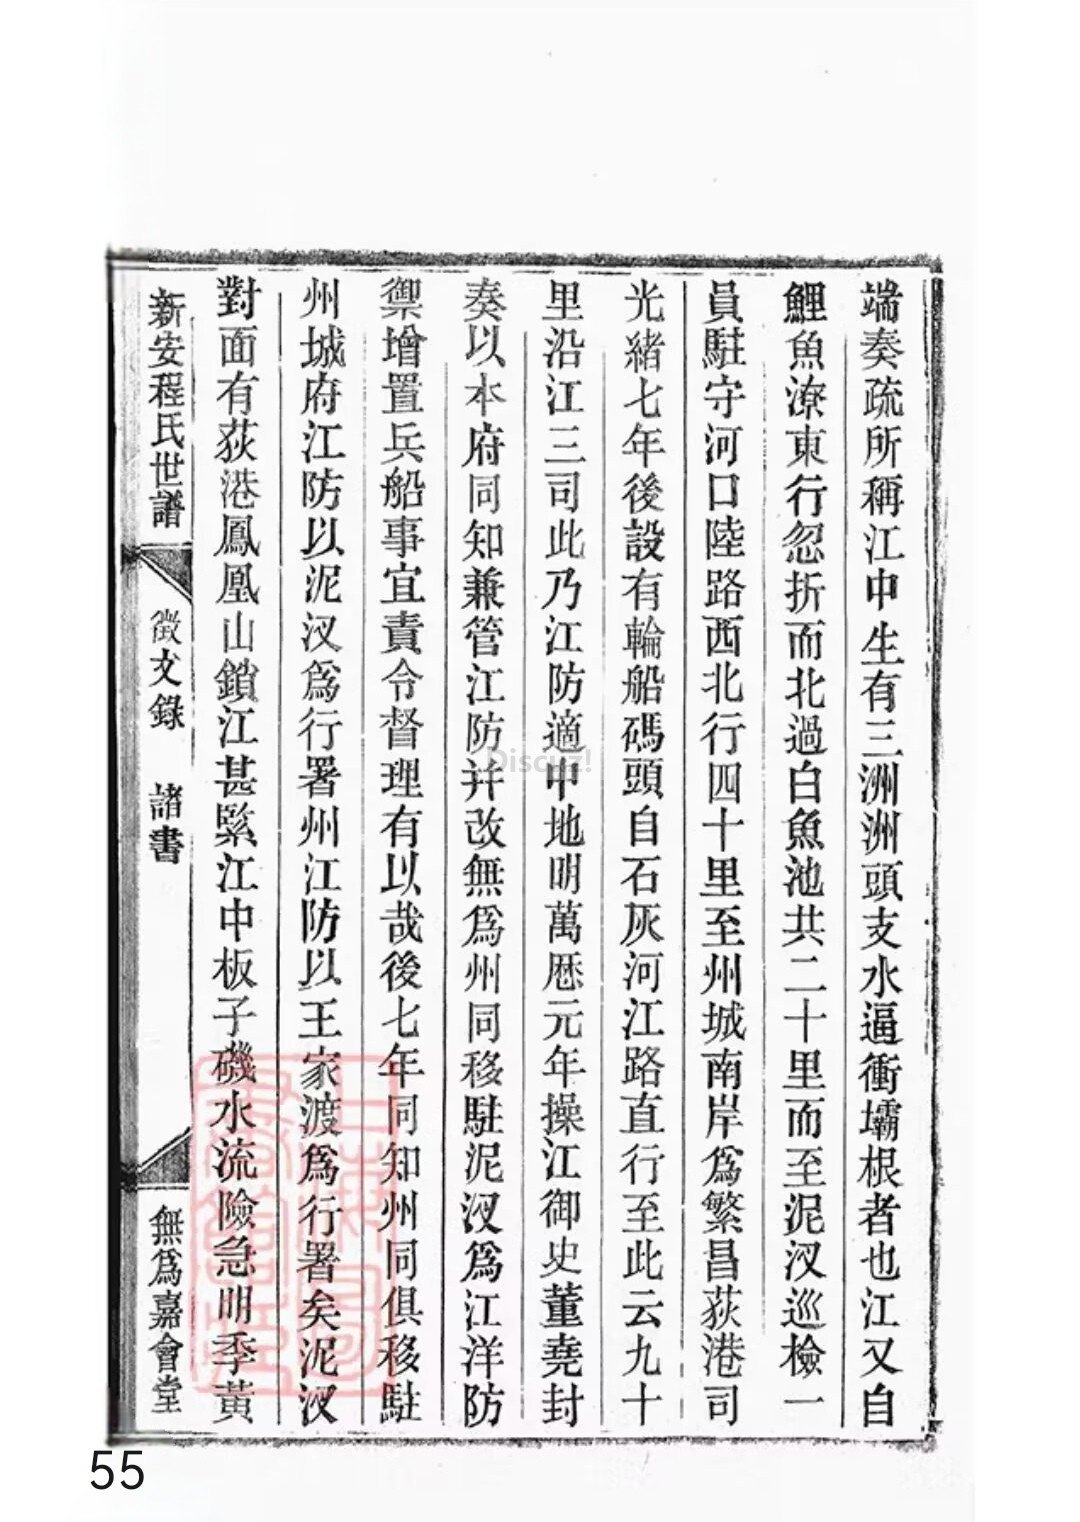 端奏疏所稱江中生有三洲洲頭支水逼衝壩根者也江又自
鯉魚潦東行忽折而北過白魚池共二十里而至泥汊巡檢一
員駐守河口陸路西北行四十里至州城南岸爲繁昌荻港司
光緒七年後設有輪船碼頭自石灰河江路直行至此云九十
里沿江三司此乃江防適中地明萬厯元年操江御史董堯封
奏以本府同知兼管江防并改無爲州同移駐泥汊爲江洋防
禦增置兵船事宜責令督理有以哉後七年同知州同俱移駐
州城府江防以泥汊爲行署州江防以王家渡爲行署矣泥汊
對面有荻港鳳凰山鎖江甚緊江中板子磯水流險急明季黃
新安程氏世譜
徵文錄
諸書
無爲嘉會堂
Discuz!
55